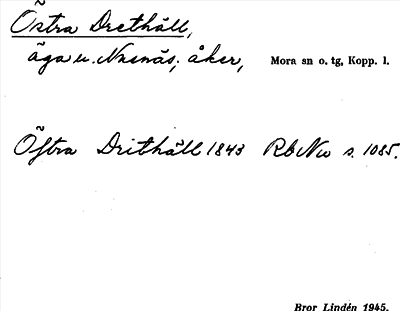 Östra Drethäll,
äga u. Nusnäs; åker, Mora sn o. tg, Kopp. l.
Öftra Drithäll 1843 RbNu s. 1085.
Bror Lindén 1945.